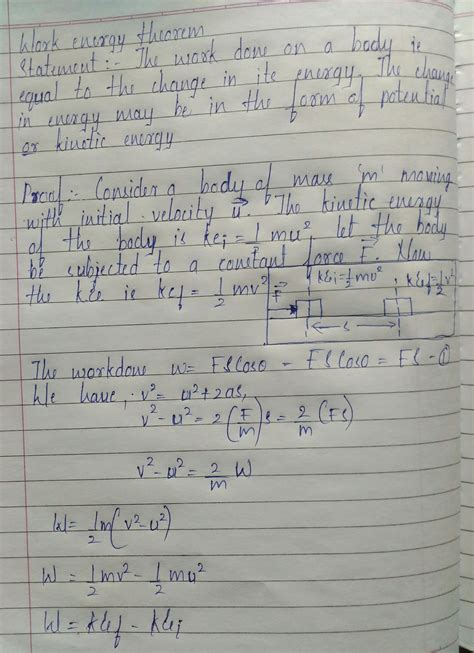 Work energy theorem
Statement :- The work done on a body is
equal to the change in its energy. The change
in energy may be in the form of potential
or kinetic energy
Proof :- Consider a body of mass 'm' moving
with initial velocity u⃗. The kinetic energy
of the body is kei = 1/2 mu² let the body
be subjected to a constant force F⃗. Now
the k.e is kef = 1/2 mv²
F⃗
kEi = 1/2 mu²
kEf = 1/2 v²
s
The workdone w = FS Cosθ - FS Cos0 = FS - ①
We have, v² = u² + 2as,
v² - u² = 2 (F/m) s = 2/m (Fs)
v² - u² = 2/m W
W = 1/2 m (v² - u²)
W = 1/2 mv² - 1/2 mu²
W = kEf - kEi